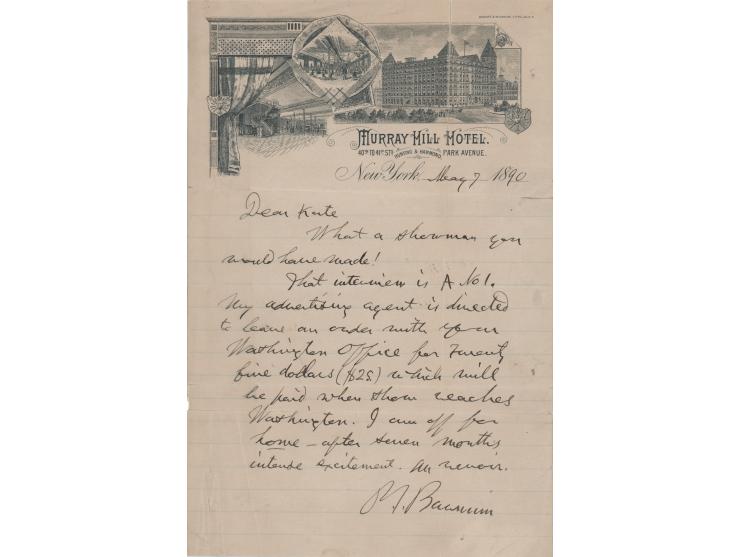 MURRAY HILL HOTEL.
40TH TO 41ST STS. HUNTING & HAMMOND PARK AVENUE.
New York, May 7 1890
Dear Kate
What a showman you
would have made!
That interview is A No 1.
My advertising agent is directed
to leave an order with your
Washington Office for Twenty
five dollars ($25) which will
be paid when show reaches
Washington. I am off for
home - after seven months
intense excitement. Au revoir.
P.T. Barnum